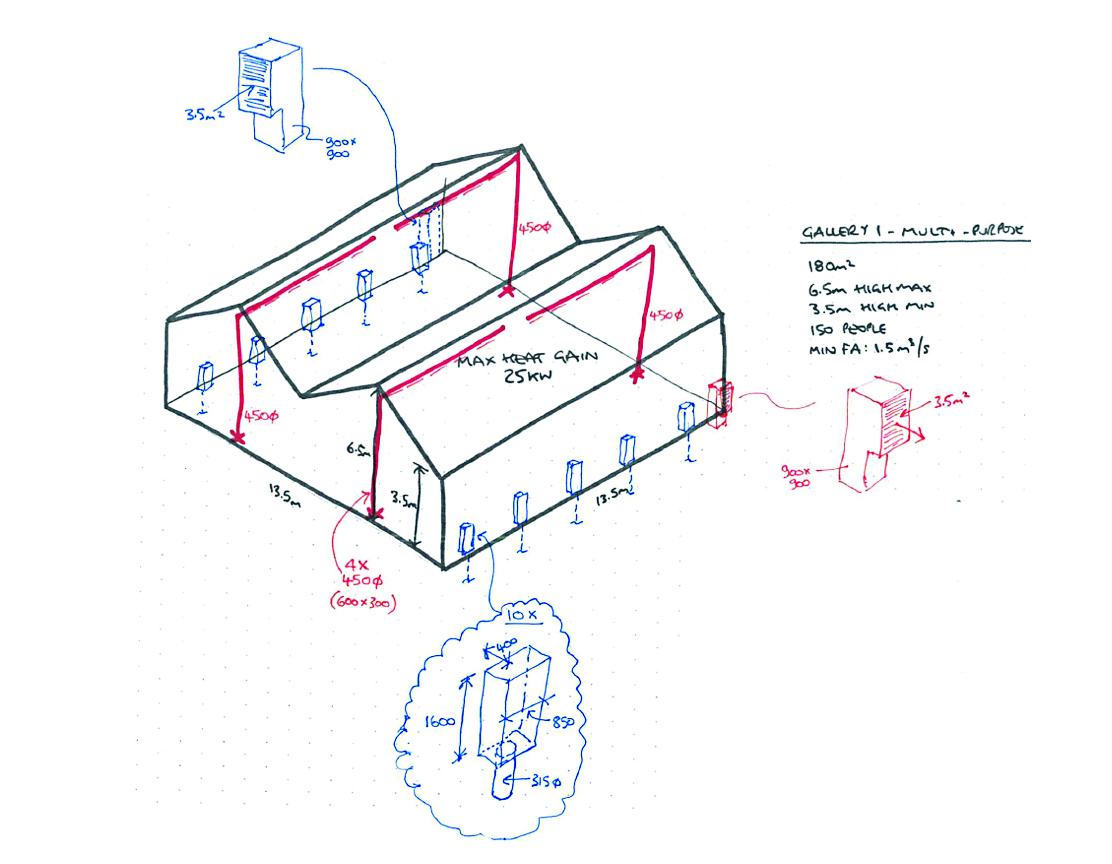 3.5m²
900x
900
450ϕ
GALLERY 1 - MULTI-PURPOSE
180m²
6.5m HIGH MAX
3.5m HIGH MIN
150 PEOPLE
MIN FA: 1.5m³/s
450ϕ
MAX HEAT GAIN
25KW
450ϕ
3.5m²
900x
900
6.5m
3.5m
13.5m
13.5m
4X
450ϕ
(600x300)
10x
400
1600
850
315ϕ